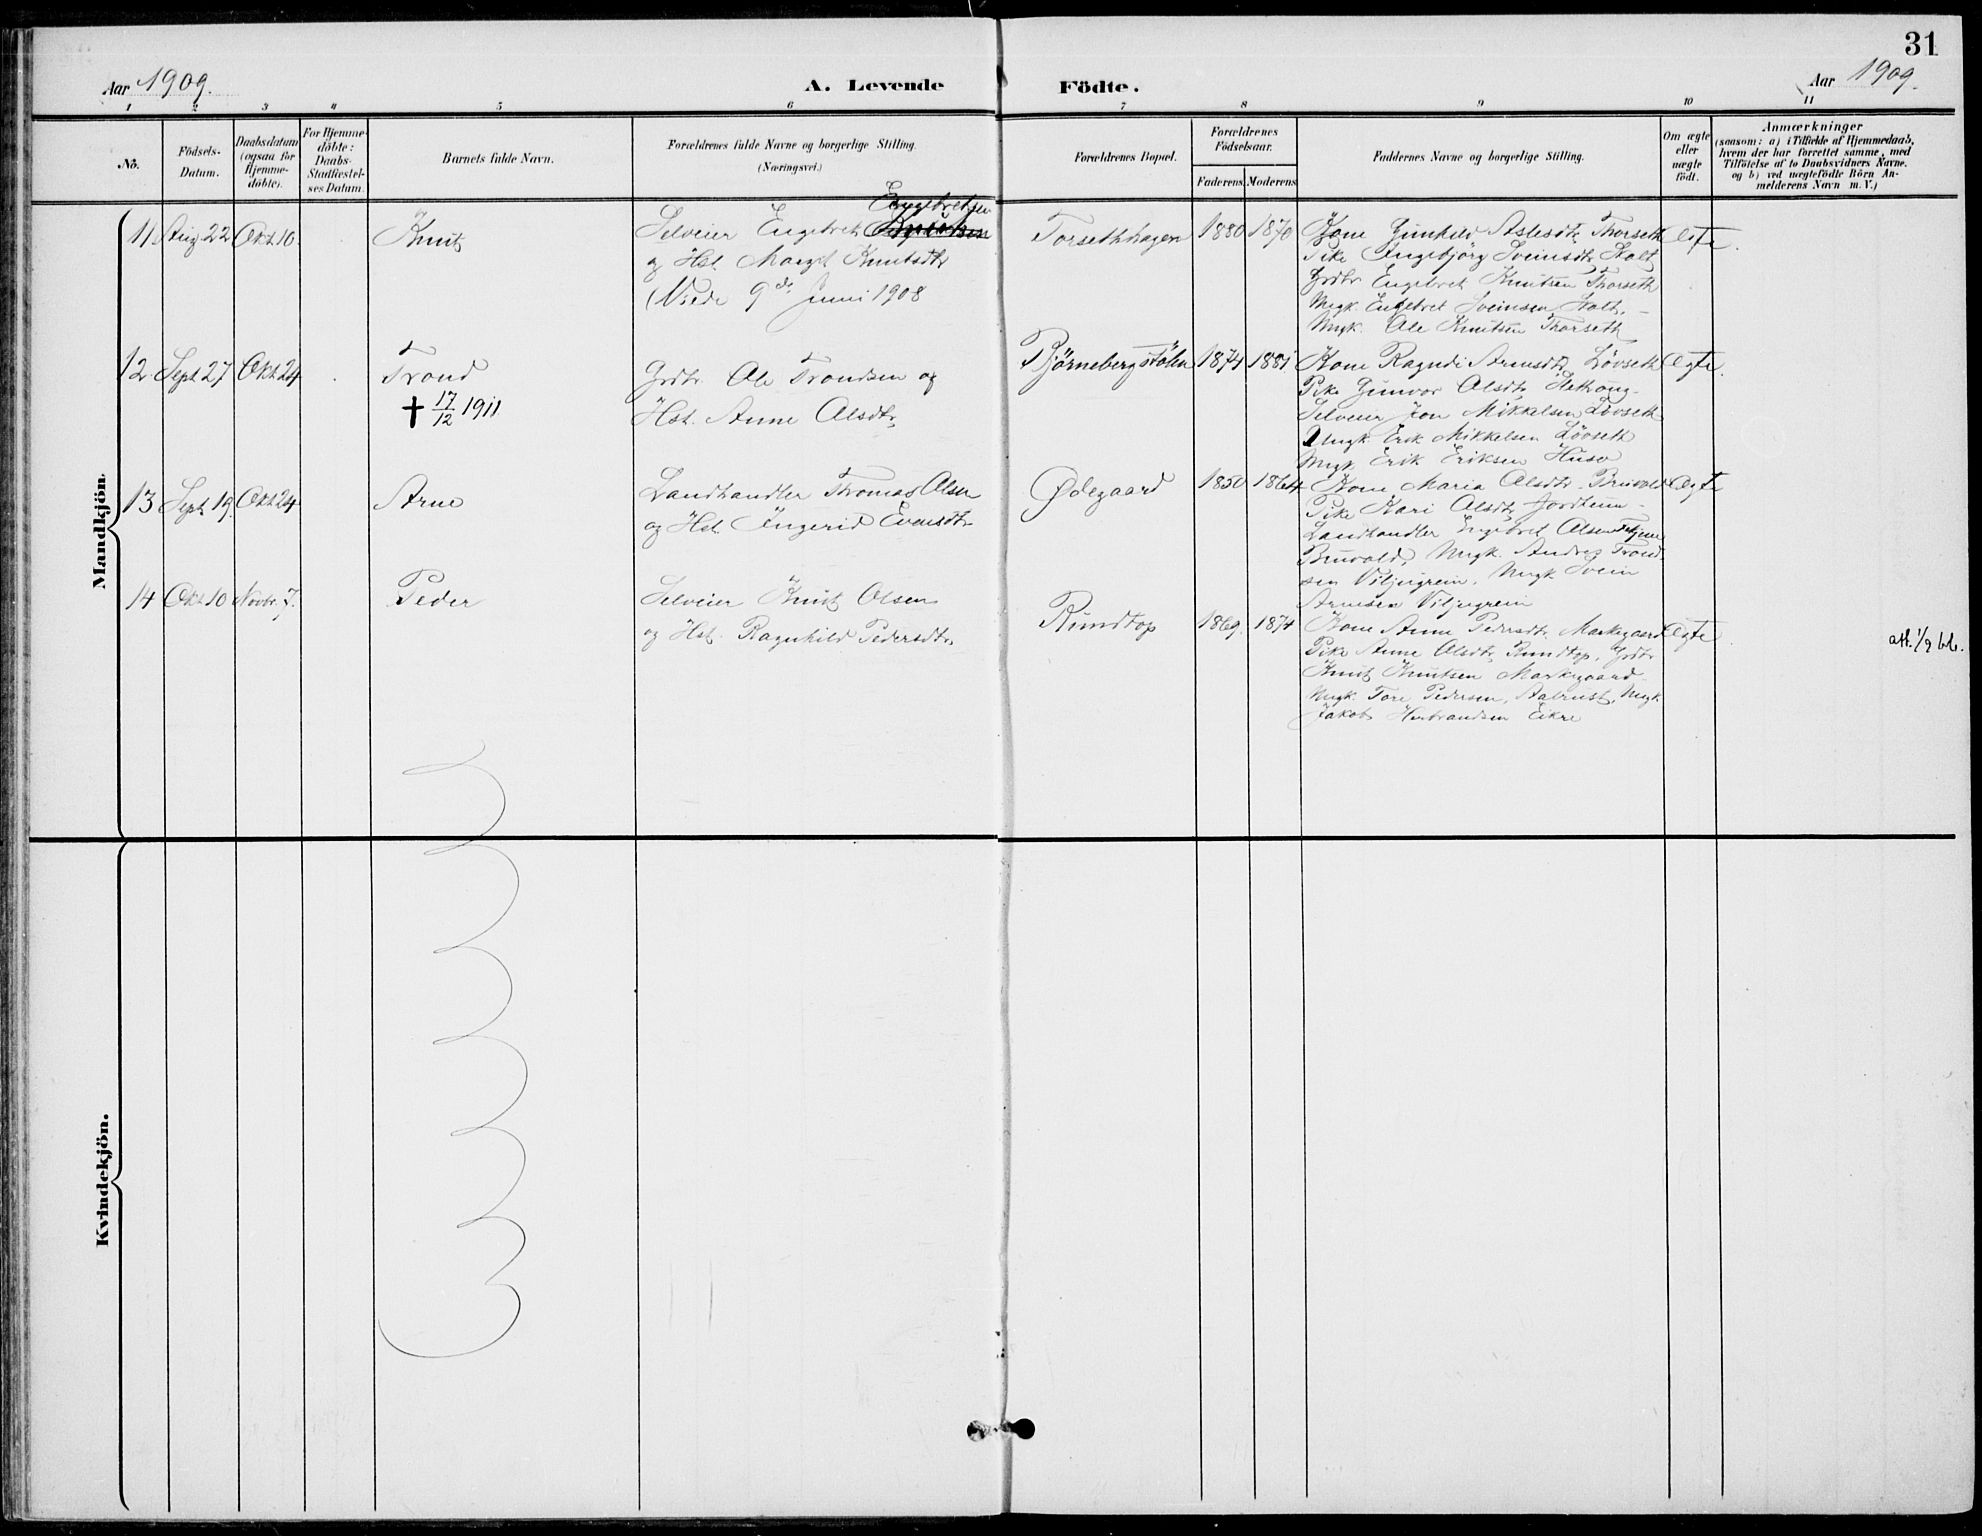 31
Aar 1909.
A. Levende
Födte.
Aar 1909.
1 2 3 4 5 6 7 8 9 10 11
No.
Födsels-
Datum.
Daabsdatum
(ogsaa for
Hjemme-
döbte).
For Hjemme-
döbte:
Daabs-
Stadfæstel-
ses Datum.
Barnets fulde Navn.
Forældrenes fulde Navne og borgerlige Stilling.
(Næringsvei.)
Forældrenes Bopæl.
Forældrenes
Födselsaar.
Faderens Moderens
Faddernes Navne og borgerlige Stilling.
Om ægte
eller
uægte
födt.
Anmærkninger
(saasom: a) i Tilfælde af Hjemmedaab,
hvem der har forrettet samme, med
Tilföielse af to Daabsvidners Navne.
og b) ved uægtefödte Börn An-
melderens Navn m. V.)
Mandkjön.
11 Aug 22 Okt 10. Knut
Engebretsen
Selveier Engebret
og Hst. Marget Knutsdtr
(Viede 9de Juni 1908
Torsethhagen 1880 1870
Kone Gunhild Aslesdtr Thorseth
Pike Ingebjörg Sveinsdtr Holt
Grdbr Engebret Knutsen Thorseth
Ungk. Engebret Sveinsen Holt.
Ungk. Ole Knutsen Thorseth
Ægte.
12. Sept 27 Okt 24 Trond
† 17/12 1911
Grdbr. Ole Trondsen og
Hst. Anne Olsdtr,
Björnebergstölen 1874 1881
Kone Ragndi Arnesdtr Lövseth
Pike Gunvor Olsdtr
Selveier Jon Mikkelsen Lövseth
Ungk. Erik Mikkelsen Lövseth
Ungk. Erik Eriksen Huso
Ægte.
13 Sept. 19. Okt 24 Arne
Landhandler Thomas Olsen
og Hst. Ingerid Evensdtr
Ødegaard 1850 1864
Kone Maria Olsdtr Bruvold
Pike Kari Olsdtr
Landhandler Engebret Olsen
Bruvold, Ungk. Andres Trond-
sen Viljugrein, Ungk Svein
Arnesen Viljugrein
Ægte
14 Okt 10 Novbr. 7. Peder
Selveier Knut Olsen
og Hst. Ragnhild Pedersdtr.
Rundtop 1869. 1874
Kone Anne Pedersdtr. Markegaard
Pike Anne Olsdtr Rundtop, Grdbr
Knut Knutsen Markegaard
Ungk. Tore Pedersen, Aalrust, Ungk
Jakob Herbrandsen Eikre
Ægte
att. 1/9 bl.
Kvindekjön.